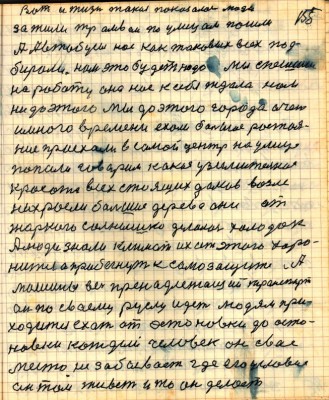 Вот и тизи такая показалас людя
155
зажили трамваи по улицам пошли
А Автобусы нас как таковых всех под-
бирали. нам это будет надо Мы спешили
на работу она нас к себе ждала нам
не до этого Мы до этого города очен
много времени ехали большое ростоя-
ние приехали в самой центр на улице
попали говорим какая узилителная
красота всех стоящих домов возле
них росли большие дерева они от
жаркого солнышко делают холодок
А люди знали климат их от этого хоро-
нится прибегнут к самозащите А
машины все пренадлежащий транспорт
он по своему руслу идет людям при-
ходится ехат от остоновки до осто-
новки каждый человек он свае
место не забывает где его условия
он там живет и то он делает